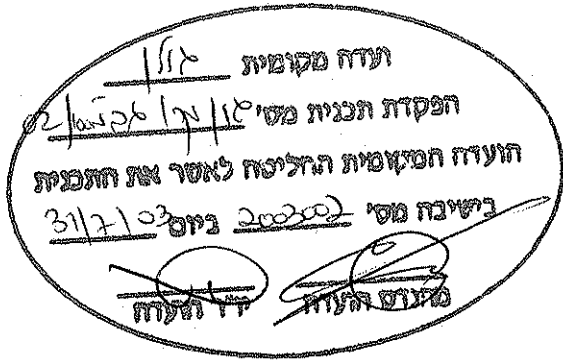 ועדה מקומית גולן
הפקדת תכנית מס'
הועדה המקומית החליטה לאשר את התכנית
בישיבה מס' 2003007 ביום 31/7/03
מהנדס הועדה יו"ר הועדה